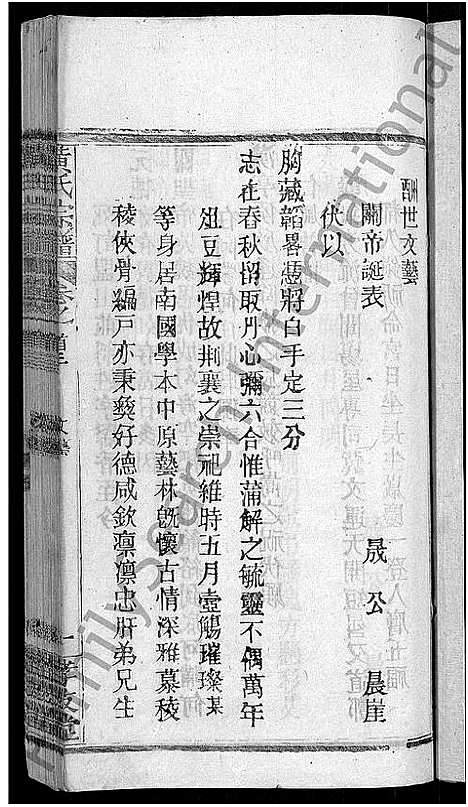 酬世文藝
關帝誕表
晟公 晨崖
伏以
胸藏韜畧蓋將白手定三分
志在春秋留取丹心彌六合惟蒲解之毓靈不偶萬年
俎豆輝煌故荆襄之崇祀維時五月壺觴璀璨某
等身居南國學本中原藝林旣懷古情深雅慕稜
稜俠骨編戶亦秉彜好德咸欽凛凛忠肝弟兄生
黃氏宗譜
文藝
FamilySearch International